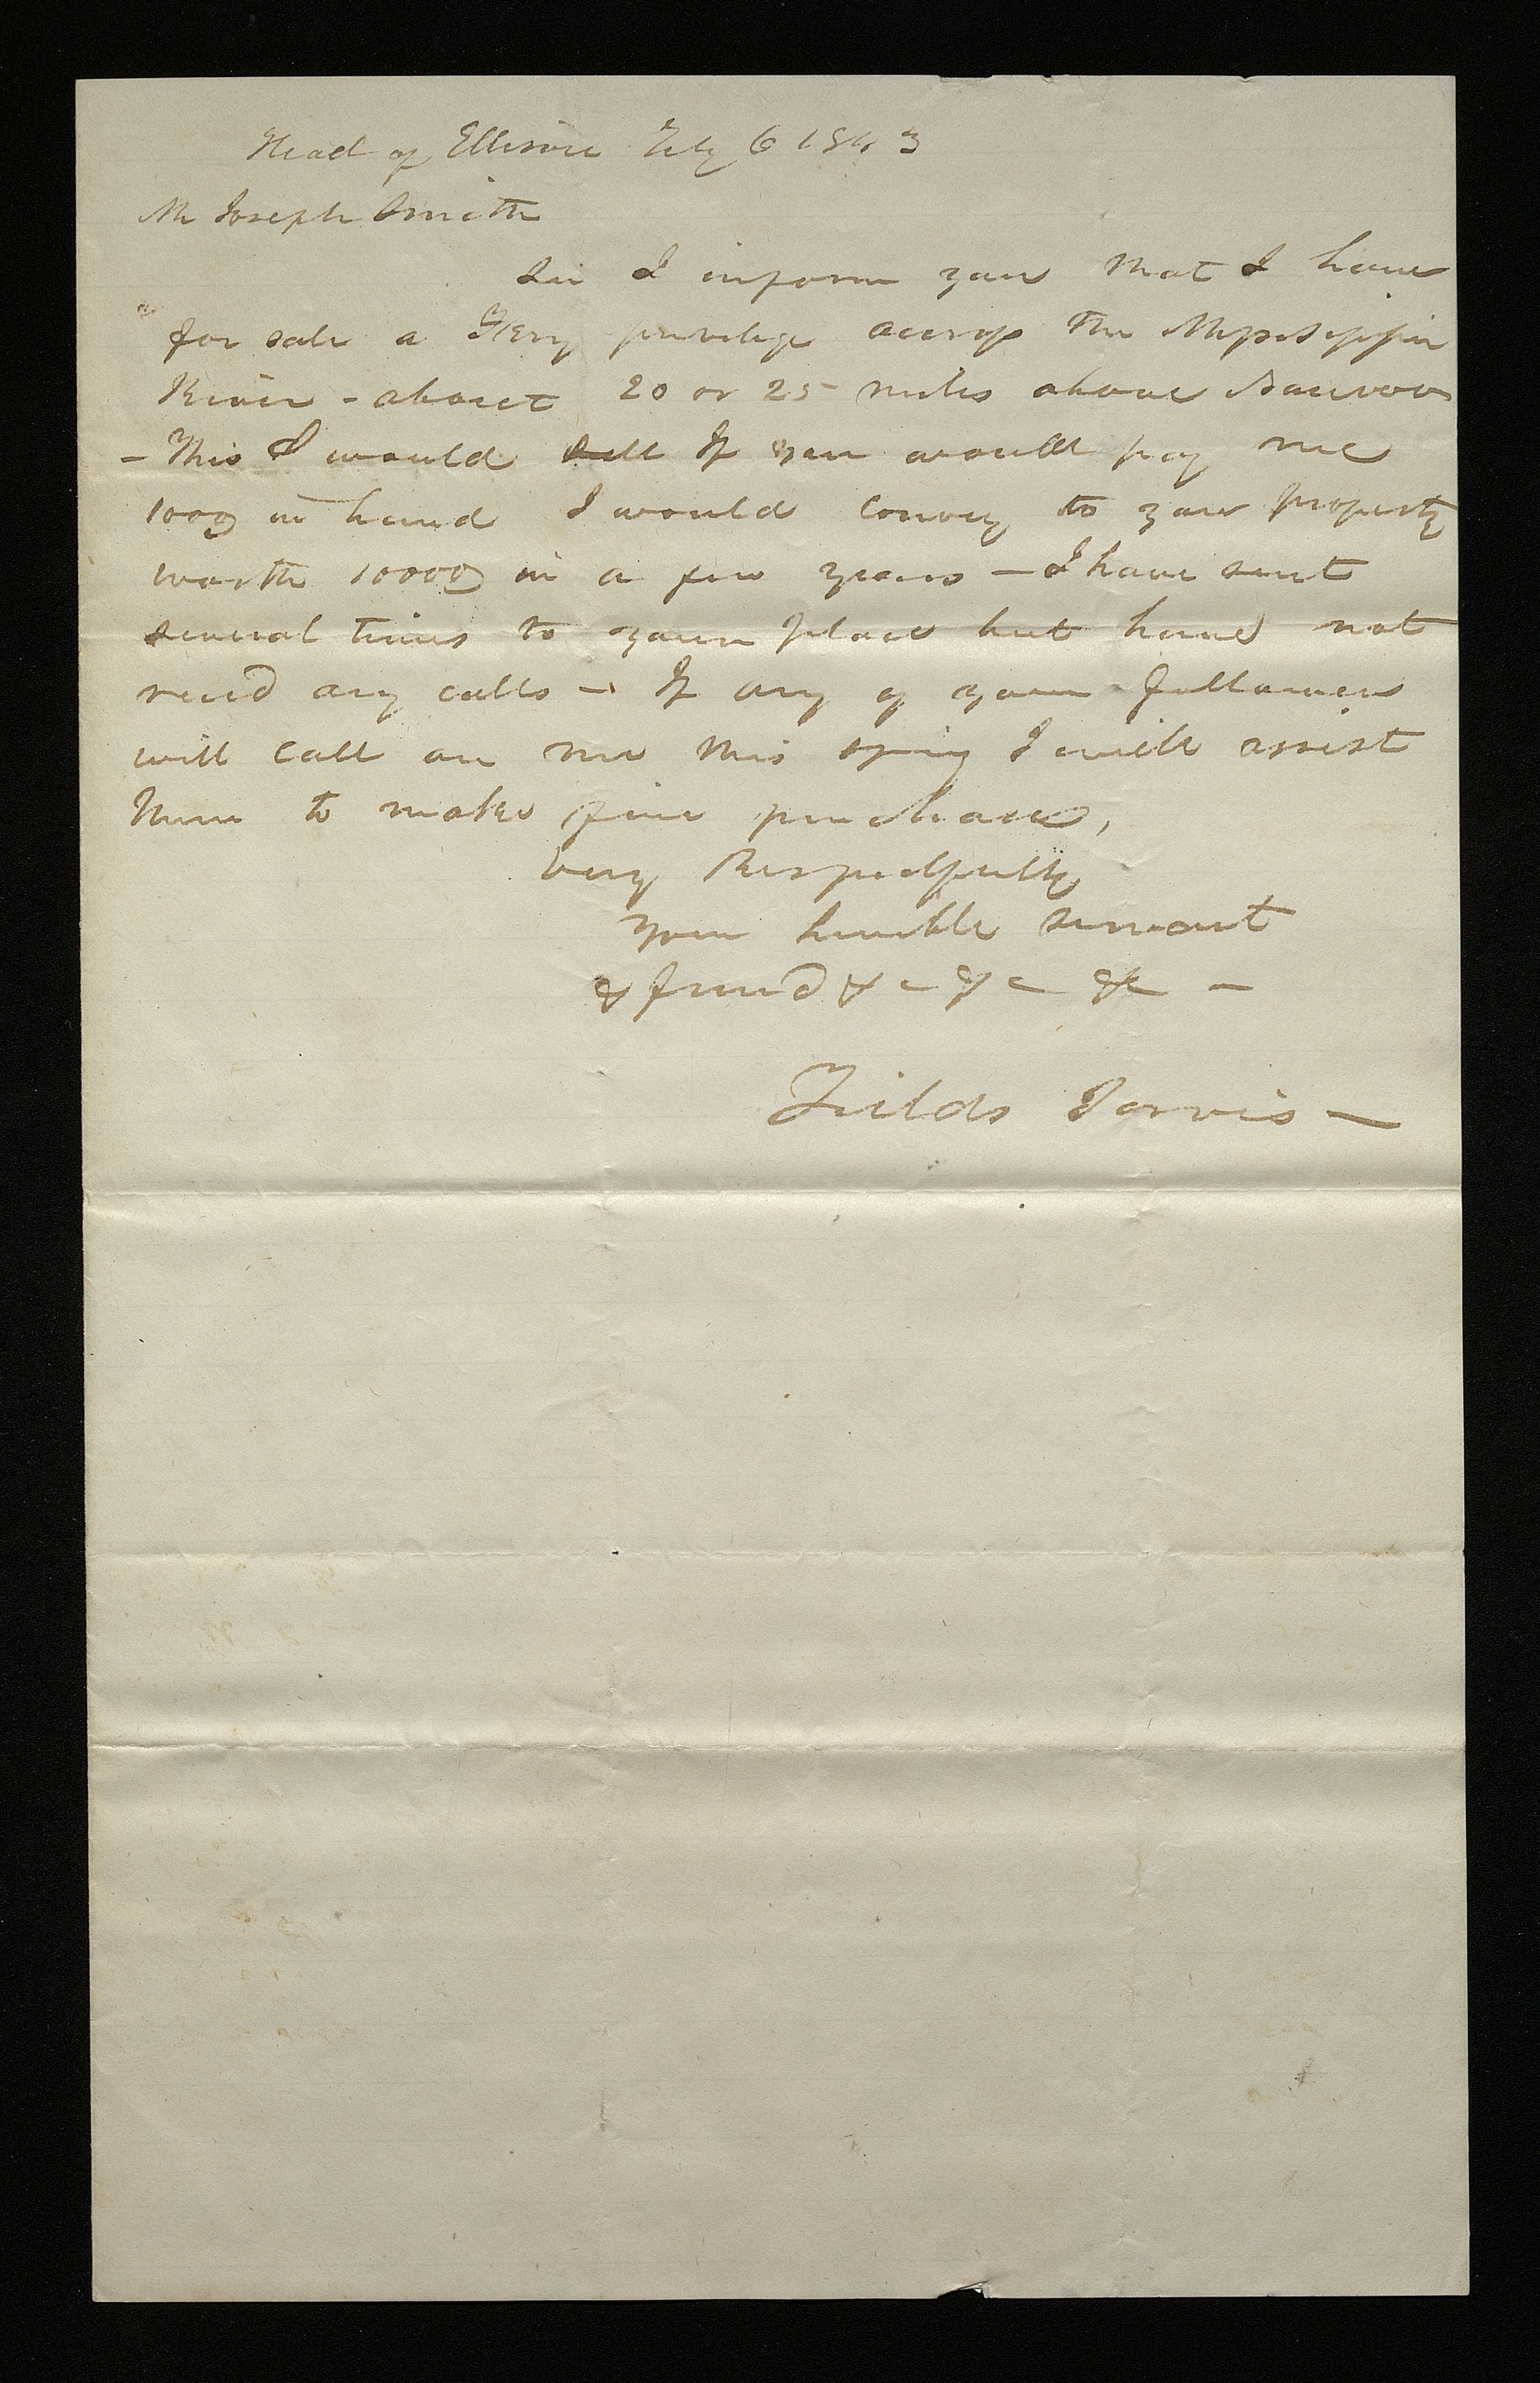 Head of Ellison Feby 6 1843
Mr Joseph Smith
Sir I inform you that I have
for sale a Ferry privilege accross the Mississippi
River - about 20 or 25 miles above Nauvoo
- This I would sell If you would pay me
100$ in hand I would convey to you property
worth 1000$ in a few years - I have sent
several times to your place but have not
recd any calls - If any of your followers
will call on me this spring I will assist
them to make fine purchases,
Very Respectfully
your humble servant
& friend &c &c &c -
Fields Jarvis -